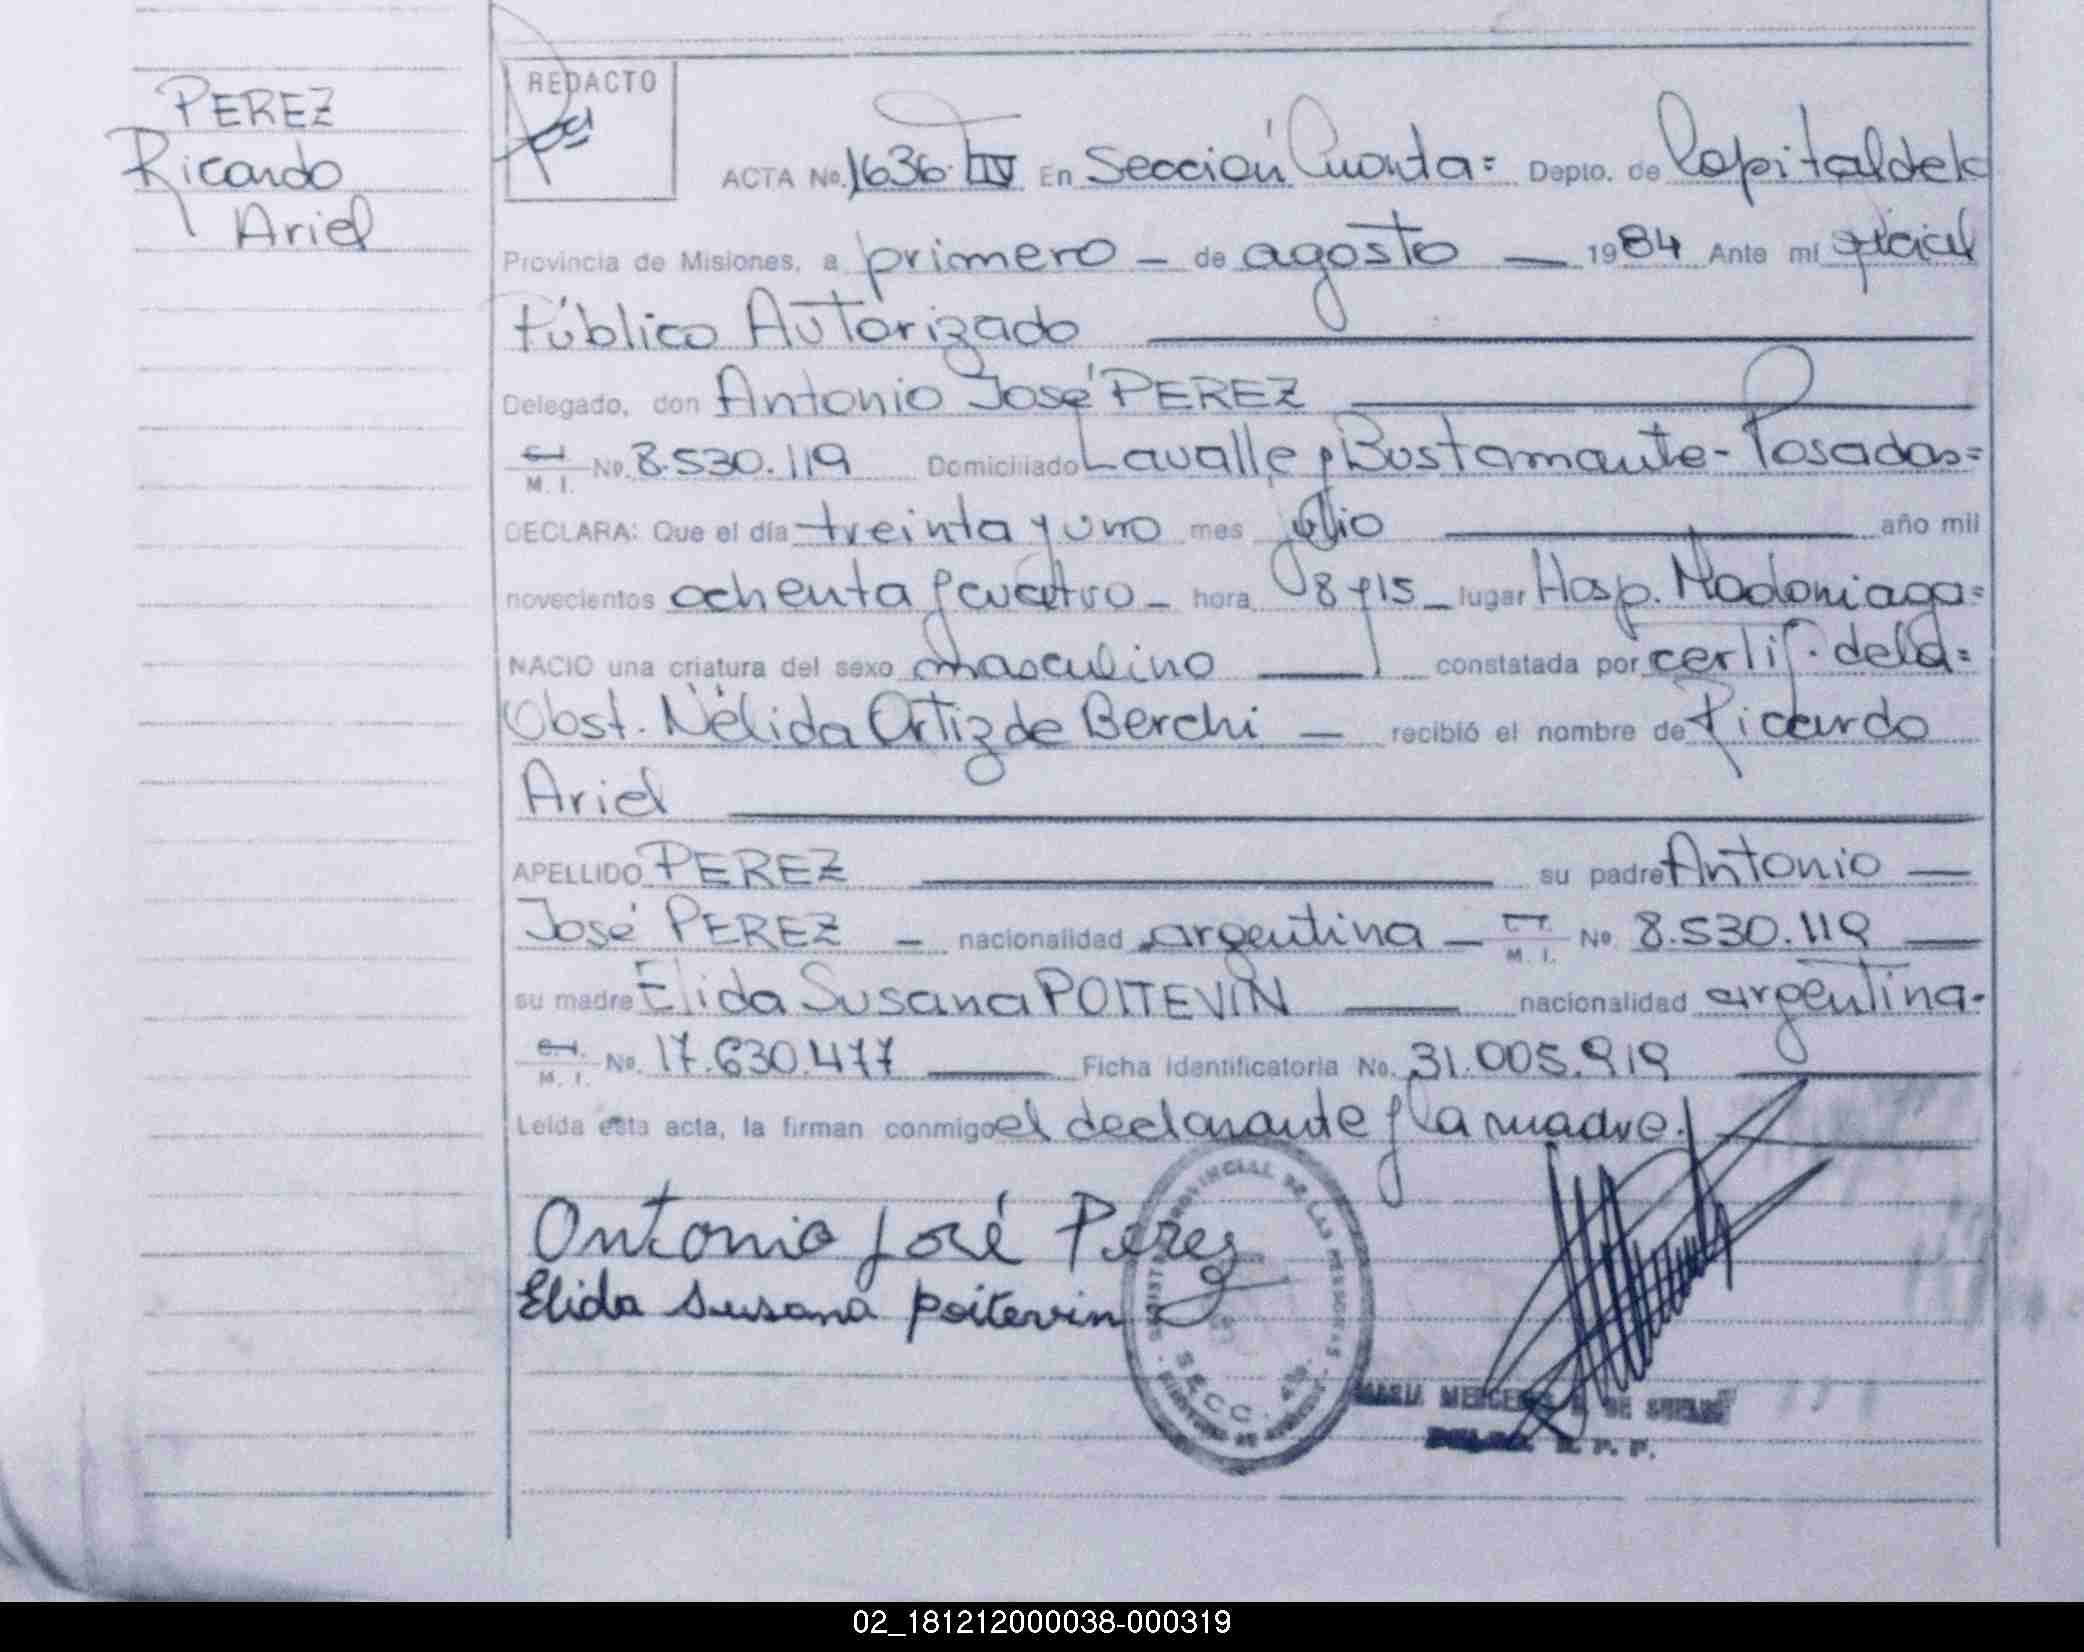 PEREZ
Ricardo
Ariel
REDACTO
ACTA No. 1636. IV En Sección Cuarta= Depto. de Capital de la
Provincia de Misiones, a primero - de agosto — 1984 Ante mí oficial
Público Autorizado
Delegado, don Antonio José PEREZ
C.I. M. I. No. 8.530.119 Domiciliado Lavalle y Bustamante - Posadas=
DECLARA: Que el día treinta y uno mes julio año mil
novecientos ochenta y cuatro - hora 8 y 15 - lugar Hosp. Madariaga=
NACIO una criatura del sexo masculino constatada por certif. de la=
Obst. Nélida Ortiz de Berchi — recibió el nombre de Ricardo
Ariel
APELLIDO PEREZ su padre Antonio —
José PEREZ - nacionalidad argentina - C.I. M. I. No 8.530.119
su madre Elida Susana POITEVIN nacionalidad argentina-
C.I. M. I. No. 17.630.477 Ficha Identificatoria No. 31.005.919
Leída esta acta, la firman conmigo el declarante y la madre.
Antonio José Perez
Elida Susana Poitevin
PROVINCIAL DE LAS PERSONAS
SECC. 4ta.
MARIA MERCEDES DE
R. P. P.
02_181212000038-000319